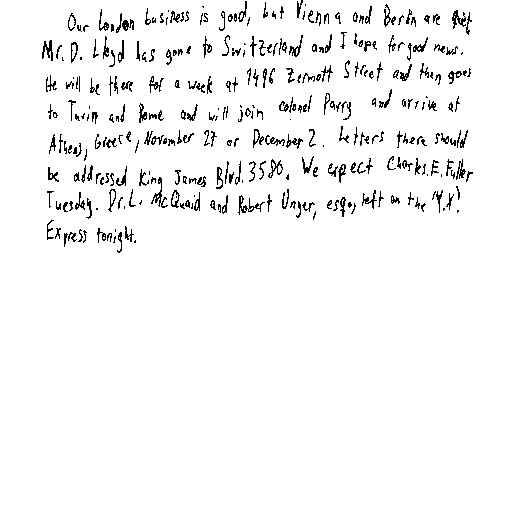 Our London business is good, but Vienna and Berlin are quiet
Mr. D. Lloyd has gone to Switzerland and I hope for good news.
He will be there for a week at 1496 Zermott Street and then goes
to Turin and Rome and will join colonel Parry and arrive at
Athens, Greece, November 27 or December 2. Letters there should
be addressed King James Blvd. 3580. We expect Charles E. Fuller
Tuesday. Dr. L. McQuaid and Robert Unger, esq., left on the "Y.X."
Express tonight.